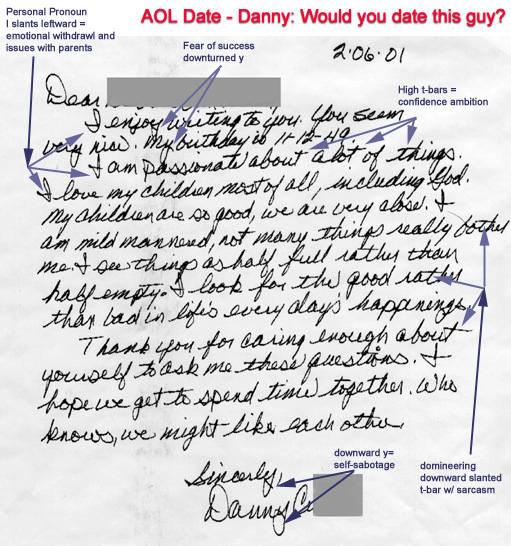 AOL Date - Danny: Would you date this guy?
Personal Pronoun
I slants leftward =
emotional withdrawl and
issues with parents
Fear of success
downturned y
2·06·01
High t-bars =
confidence ambition
Dear
I enjoy writing to you. You seem
very nice. My birthday is 11-12-49.
I am passionate about a lot of things.
I love my children most of all, including God.
My children are so good, we are very close. I
am mild mannered, not many things really bother
me. I see things as half full rather than
half empty. I look for the good rather
than bad in life's every days happenings.
Thank you for caring enough about
yourself to ask me these questions. I
hope we get to spend time together. Who
knows, we might like each other.
downward y=
self-sabotage
domineering
downward slanted
t-bar w/ sarcasm
Sincerly,
Danny C